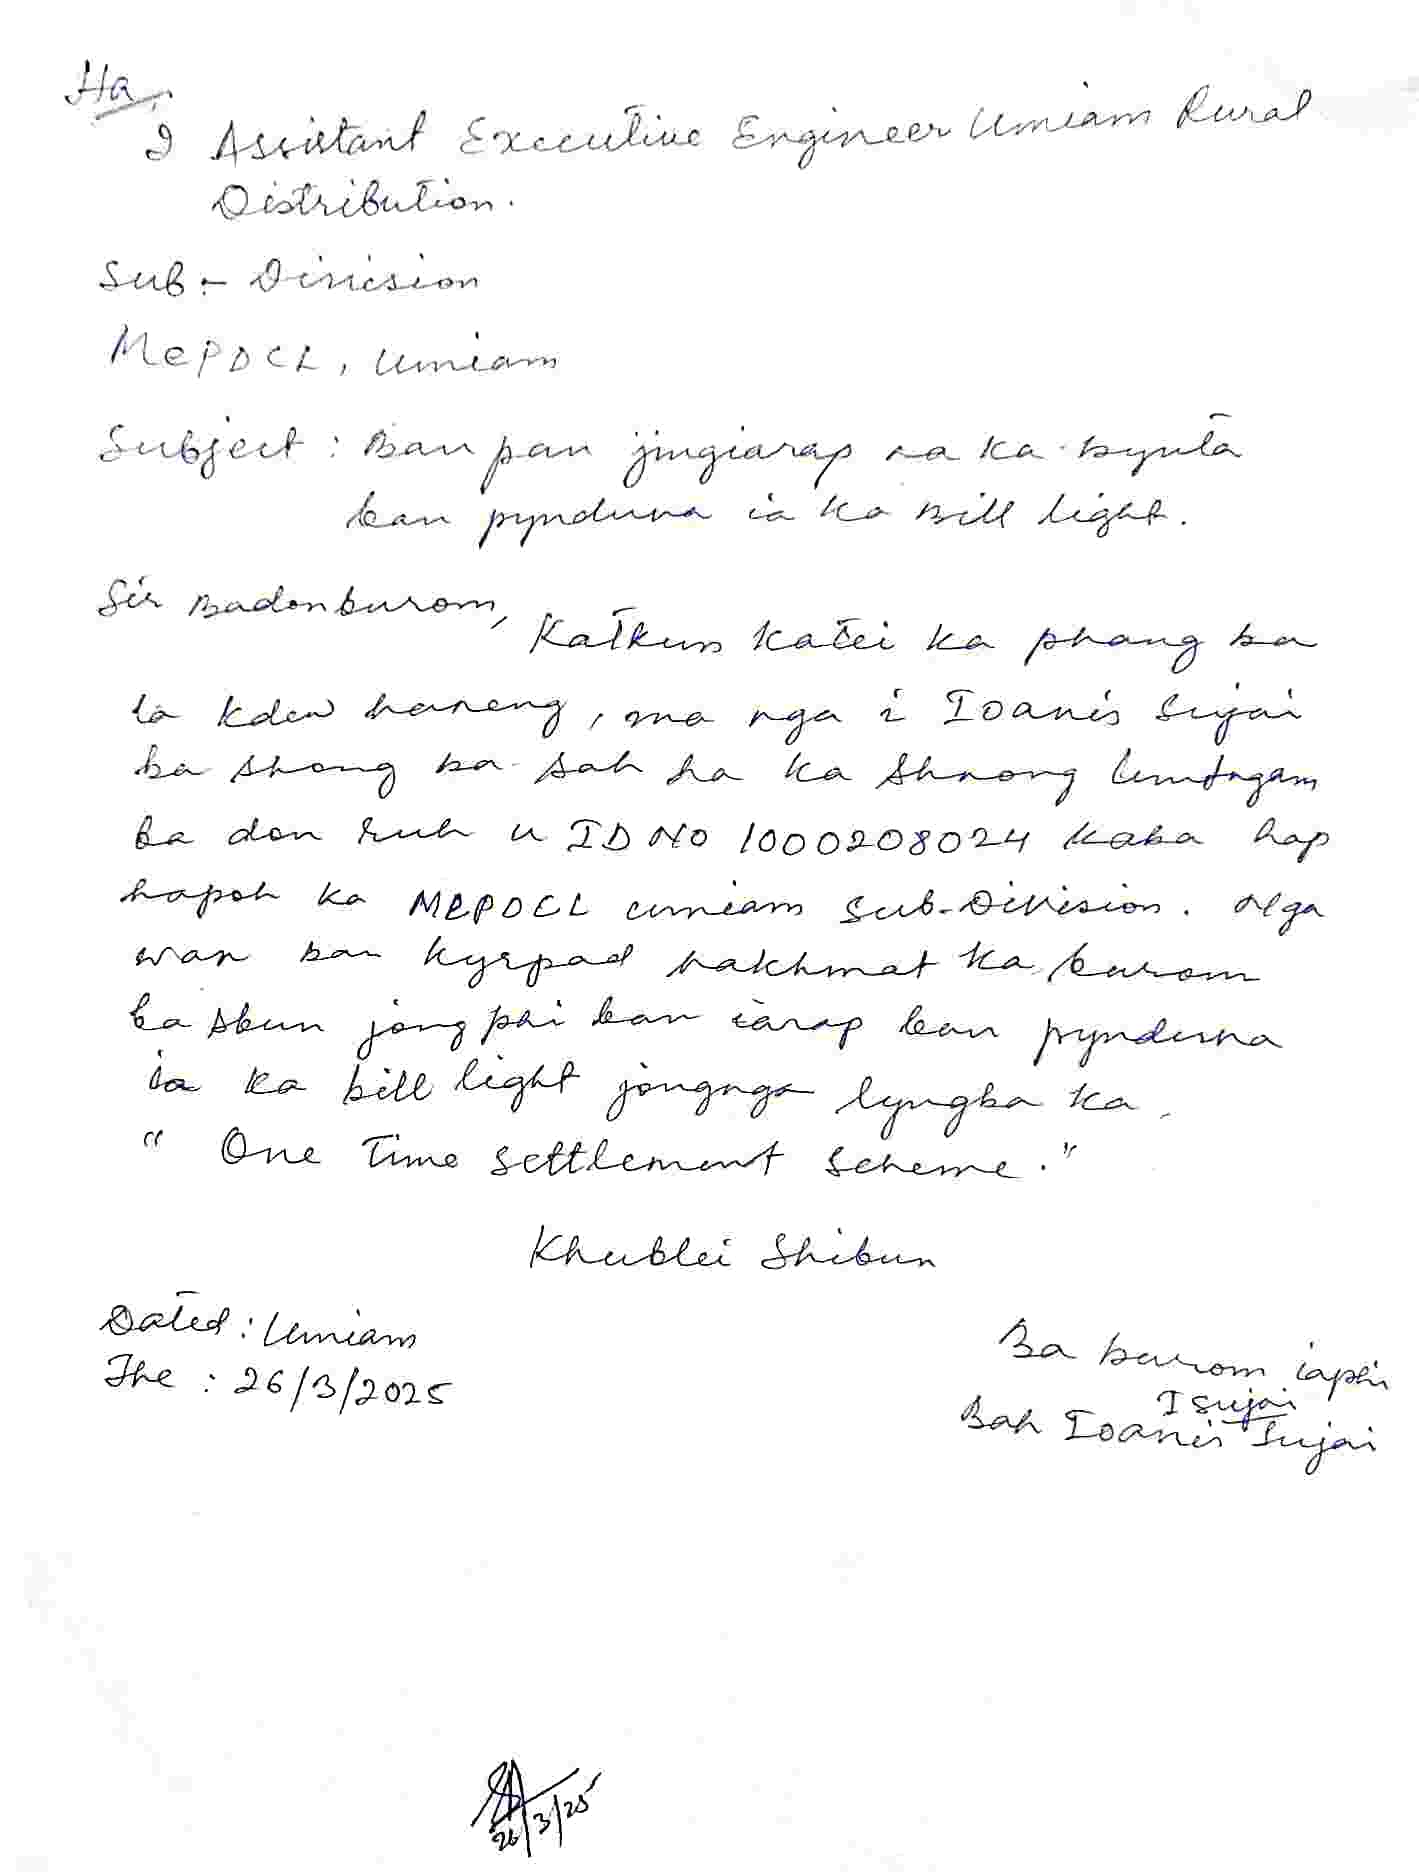 Ha,
I Assistant Executive Engineer Umiam Rural
Distribution.
Sub - Division
MePDCL, Umiam
Subject : Ban pan jingiarap na ka bynta
ban pynduna ia ka Bill light.
Sir Badonburom,
Katkum katei ka phang ba
la kdew haneng, ma nga i Ioanis Sujai
ba shong ba sah ha ka Shnong Umtngam
ba don ruh u ID NO 1000208024 kaba hap
hapoh ka MePDCL umiam Sub-Division. Nga
wan ban kyrpad nakhmat ka burom
ba sbun jong phi ban iarap ban pynduna
ia ka bill light jongnga lyngba ka
" One Time Settlement Scheme ."
Khublei Shibun
Dated : Umiam
The : 26/3/2025
Ba burom iaphi
I Sujai
Bah Ioanis Sujai
26/3/25